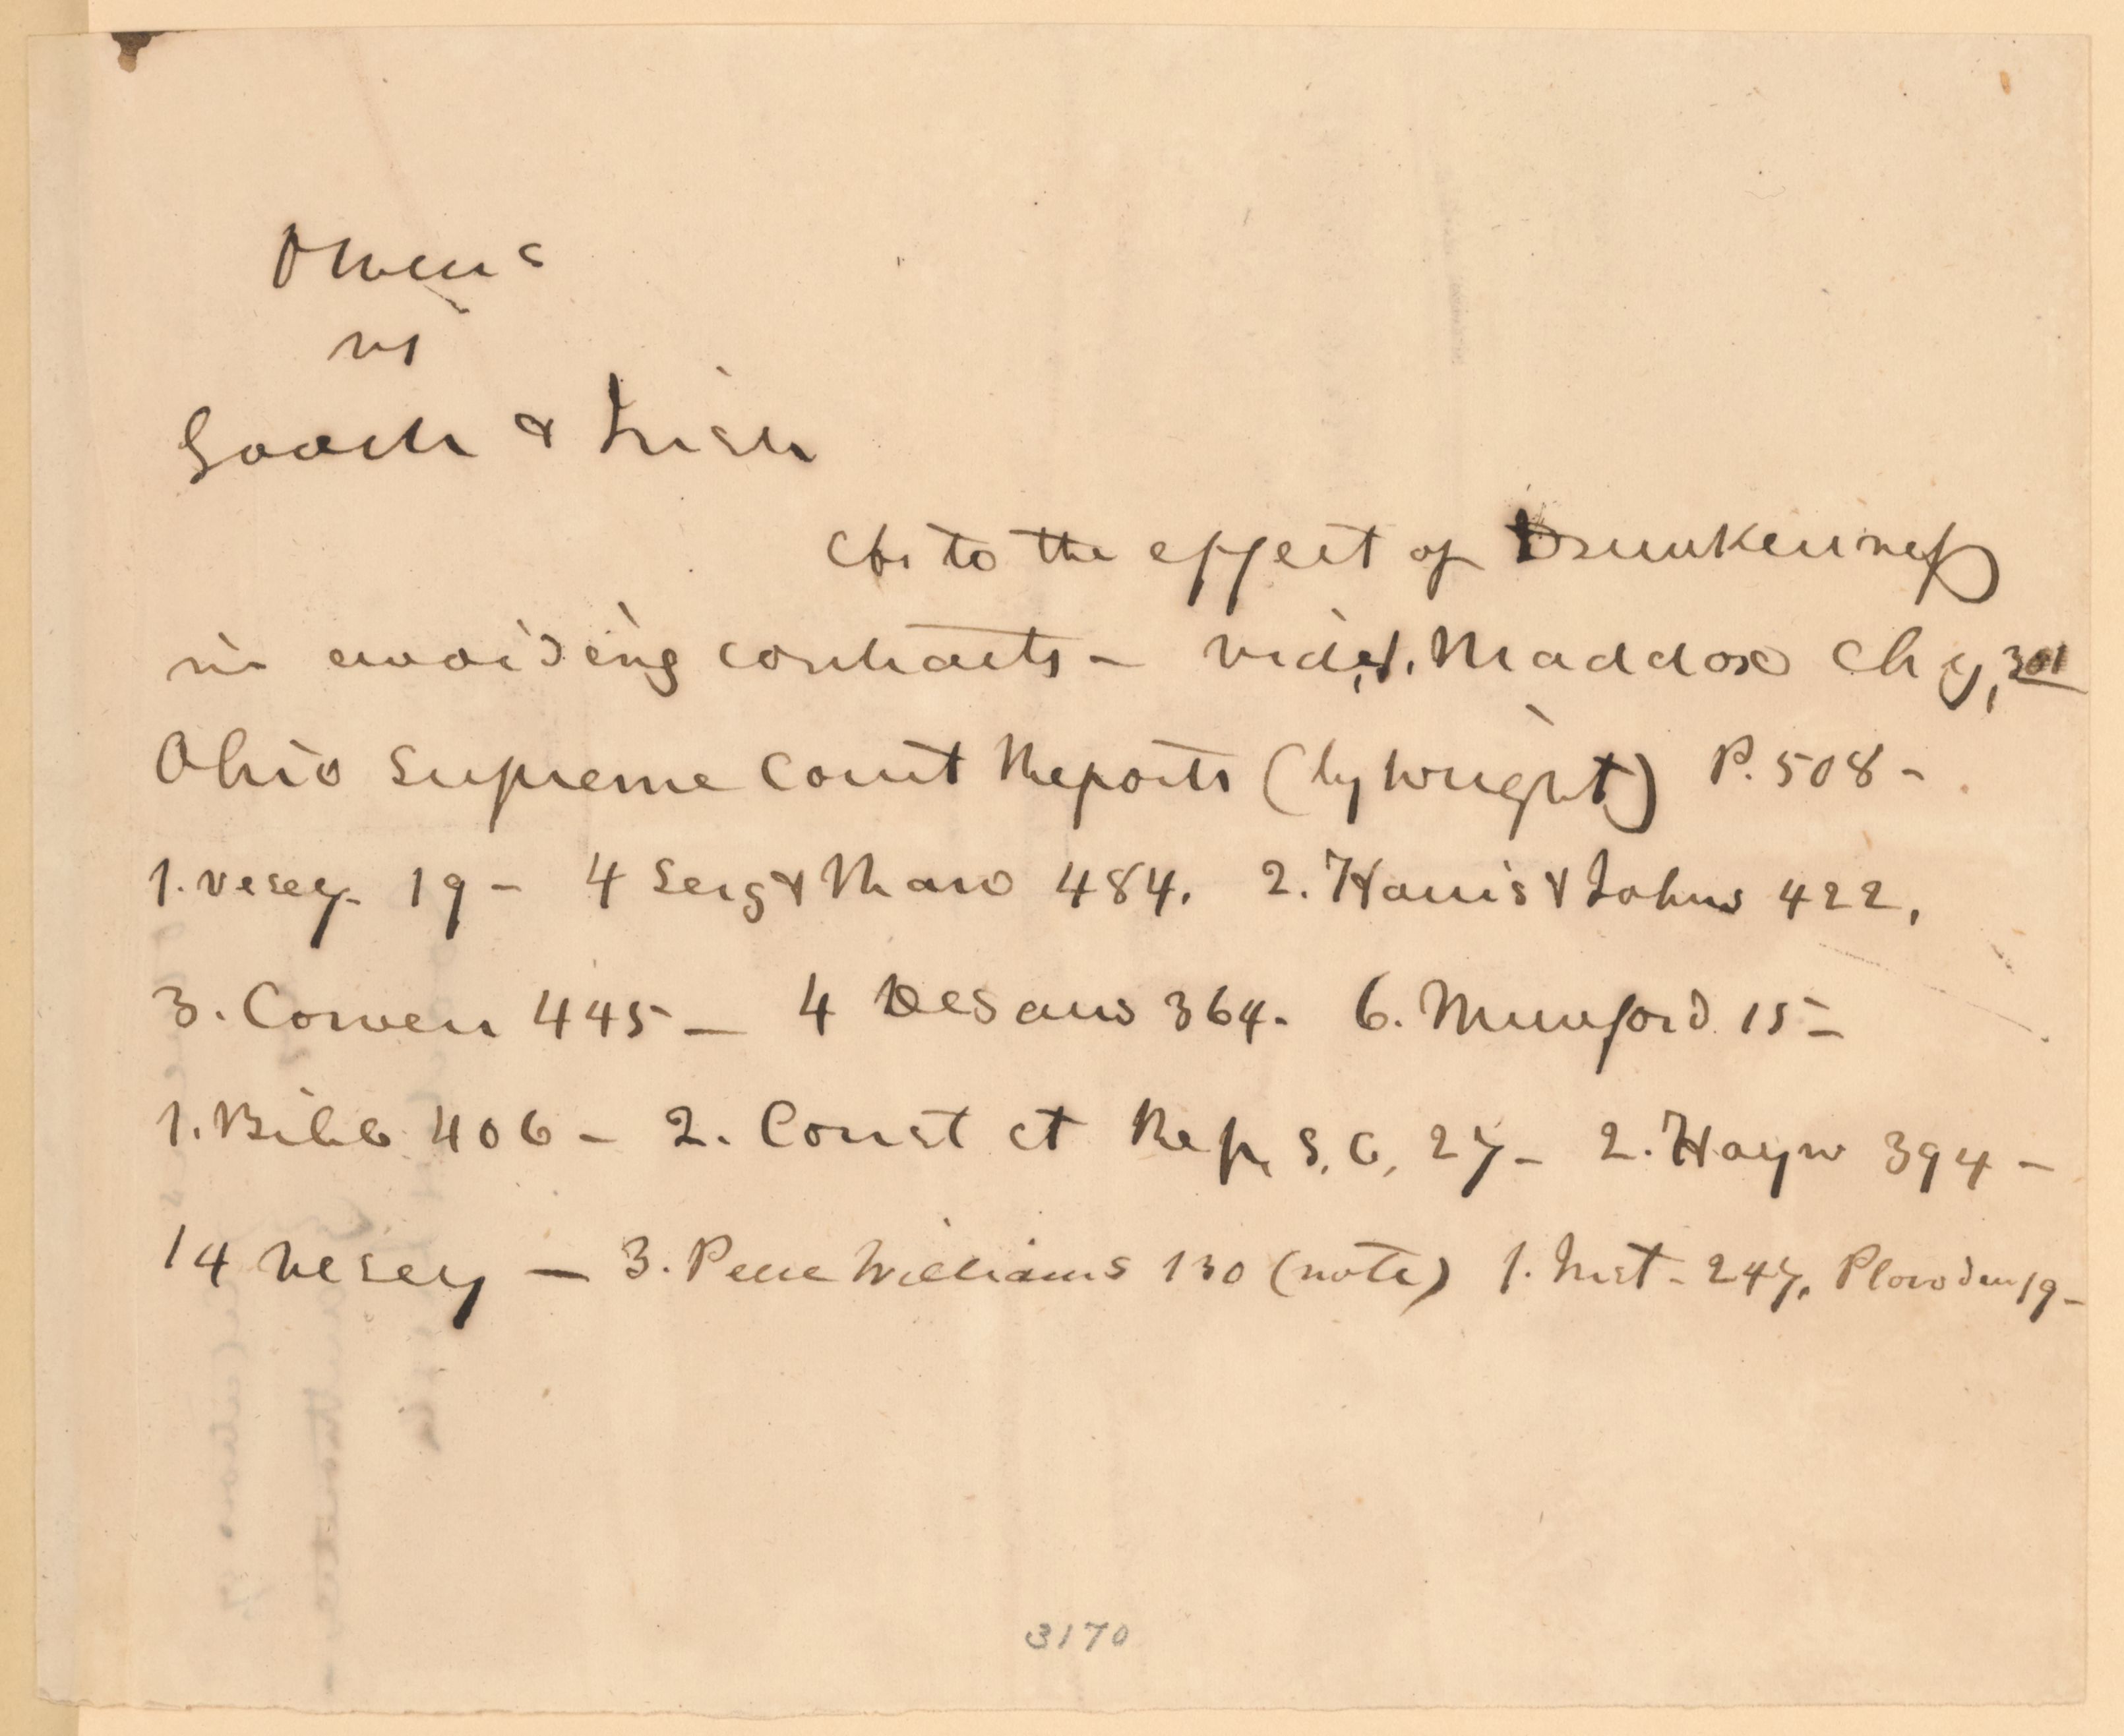 Owens
vs
Gooch & Irish
As to the effect of Drunkenness
in avoiding contracts - vide, 1. Maddox Chy, 301
Ohio Supreme Court Reports (by Wright) P. 508 -
1. Vesey. 19 - 4 Serg & Raw 484. 2. Harris & Johns 422,
3. Cowen 445 - 4 Desaus 364. 6. Munford 15 -
1. Bibb 406 - 2. Const ct Rep, S, C, 27 - 2. Hayw 394 -
14 Vesey - 3. Peere Williams 130 (note) 1. Inst - 247, Plowden 19 -
3170